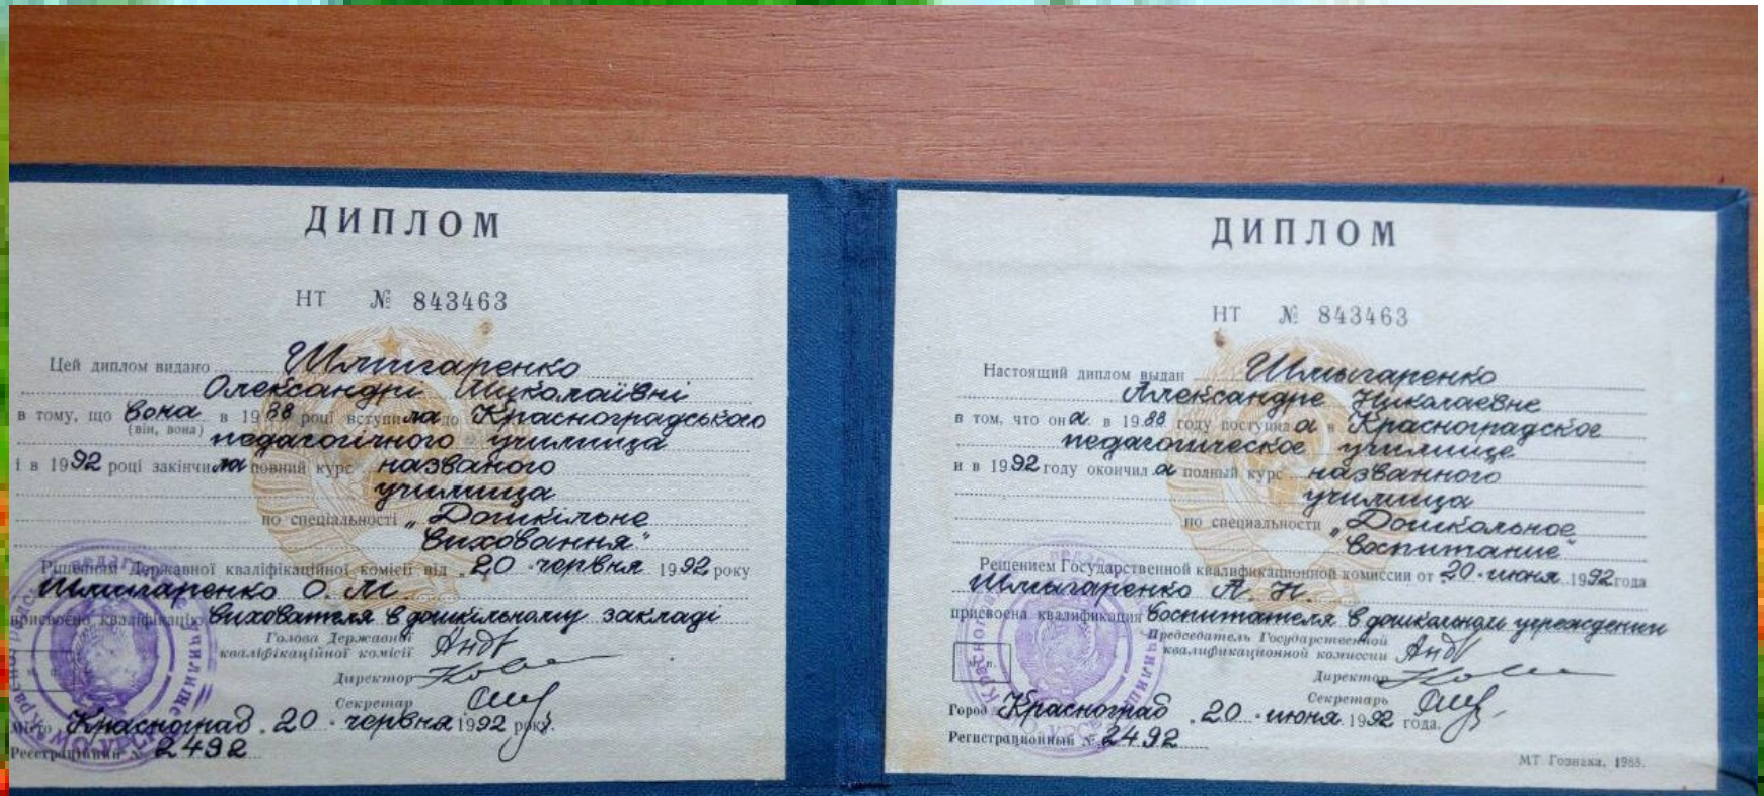 ДИПЛОМ
НТ № 843463
Цей диплом видано Шлигаренко
Олександрі Миколаївні
в тому, що вона в 1988 році вступила до Красноградського
(він, вона)
педагогічного училища
і в 1992 році закінчила повний курс названого
училища
по спеціальності „Дошкільне
виховання"
Рішенням Державної кваліфікаційної комісії від „20 червня 1992 року
Шлигаренко О. М.
присвоєно кваліфікацію вихователя в дошкільному закладі
Голова Державної
кваліфікаційної комісії
Директор
Секретар
Місто Красноград 20 червня 1992 року.
Реєстраційний № 2492
ДИПЛОМ
НТ № 843463
Настоящий диплом выдан Шлыгаренко
Александре Николаевне
в том, что она в 1988 году поступила в Красноградское
педагогическое училище
и в 1992 году окончила полный курс названного
училища
по специальности „Дошкольное
воспитание"
Решением Государственной квалификационной комиссии от 20 июня 1992 года
Шлыгаренко А. Н.
присвоена квалификация воспитателя в дошкольном учреждении
Председатель Государственной
квалификационной комиссии
Директор
м. п.
Секретарь
Город Красноград 20 июня 1992 года.
Регистрационный № 2492
МТ Гознака. 1988.